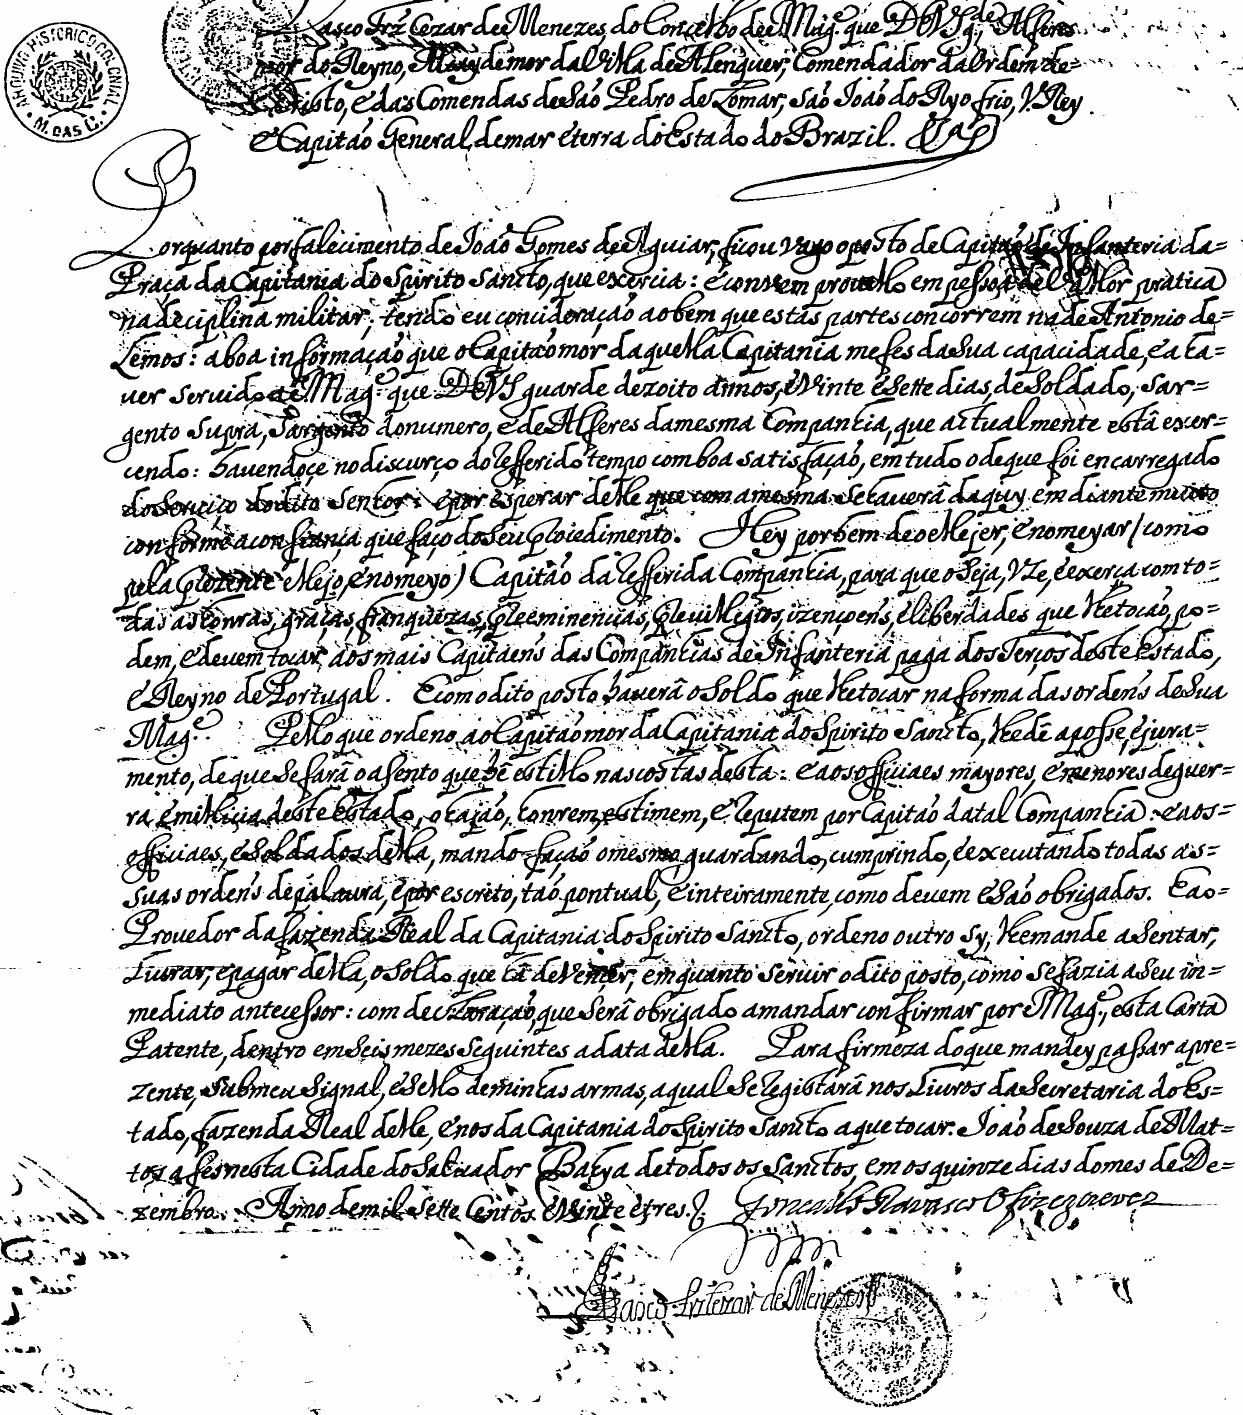 Vasco Frz Cezar de Menezes, do Conselho de S. Mag.e que DEVS g.de, Alferes
mor do Reyno, Alcayde mor da Villa de Alenquer, Comendador da Ordem de=
Christo, e das Comendas de São Pedro de Lomar, são João do Ryo frio, V. Rey
e Capitão General, de mar e terra do Estado do Brazil. &.ª
Porquanto por falecimento de João Gomes de Aguiar, ficou vago o posto de Capitão de Infanteria da=
Praça da Capitania do Spirito Sancto, que exercia: e convem provello em pessoa de mor pratica
na deciplina militar; tendo eu concideração ao bem que estas partes concorrem na de Antonio de=
Lemos: a boa informação que o Capitão mor daquella Capitania me fes da sua capacidade, e a ha=
ver servido a S. Mag.e que DEVS guarde dezoito annos, e vinte e sette dias, de Soldado, Sar=
gento supra, Sargento do numero, e de Alferes da mesma Companhia, que actualmente está exer=
cendo: havendoçe no discurço do refferido tempo com boa satisfação, em tudo o de que foi encarregado
do Serviço do dito Senhor: e por esperar delle que com a mesma se haverá daquy em diante muito
conforme a confiança que faço do seu procedimento. Hey por bem de o ellejer, e nomeyar (como
pela prezente ellejo, e nomeyo) Capitão da refferida Companhia, para que o seja, uze, e exerça com to=
das as honras, graças, franquezas, preeminencias, previllegios, izençoens, e liberdades que lhe tocão, po=
dem, e devem tocar, aos mais Capitaens das Companhias de Infanteria paga dos Terços deste Estado,
e Reyno de Portugal. E com o dito posto haverá o Soldo que lhe tocar na forma das ordens de Sua
Mag.e Pello que ordeno ao Capitão mor da Capitania do Spirito Sancto, lhe dê a posse, e jura=
mento, de que se fará o asento que hê estillo nas costas desta: e aos officiaes mayores, e menores de guer=
ra, e milicia deste Estado, o hajão, honrem, estimem, e reputem por Capitão da tal Companhia: e aos=
officiaes, e Soldados della, mando fação o mesmo, guardando, cumprindo, e executando todas as=
suas ordens de palavra, e por escreto, tão pontual, e inteiramente, como devem e são obrigados. E ao=
Provedor da fazenda Real da Capitania do Spirito Sancto, ordeno outro sy, lhe mande asentar,
livrar, e pagar della, o Soldo que há de vencer, emquanto servir o dito posto, como se fazia a seu in=
mediato antecessor: com declaração, que será obrigado a mandar confirmar por S. Mag.e, esta Carta
Patente, dentro em seis mezes seguintes a data della. Para firmeza do que mandey passar a pre=
zente, sub meu signal, e sello de minhas armas, a qual se registará nos Livros da Secretaria do Es=
tado, fazenda Real delle, e nos da Capitania do Spirito Sancto a que tocar. João de Souza de Mat=
tos a fes nesta Cidade do Salvador Bahya de todos os Sanctos, em os quinze dias do mes de De=
zembro. Anno de mil sette Centos e vinte e tres.
Vasco Frz Cezar de Menezes
ARQUIVO HISTÓRICO COLONIAL
M. DAS C.